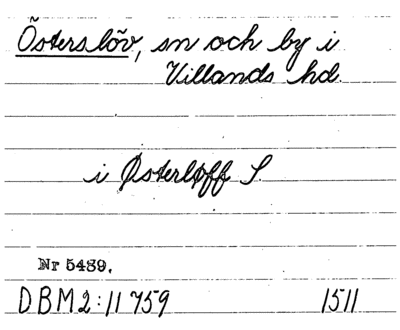 Österslöv, sn och by i
Villands hd.
i Østerløff S.
Nr 5489.
DBM2:11 759 1511